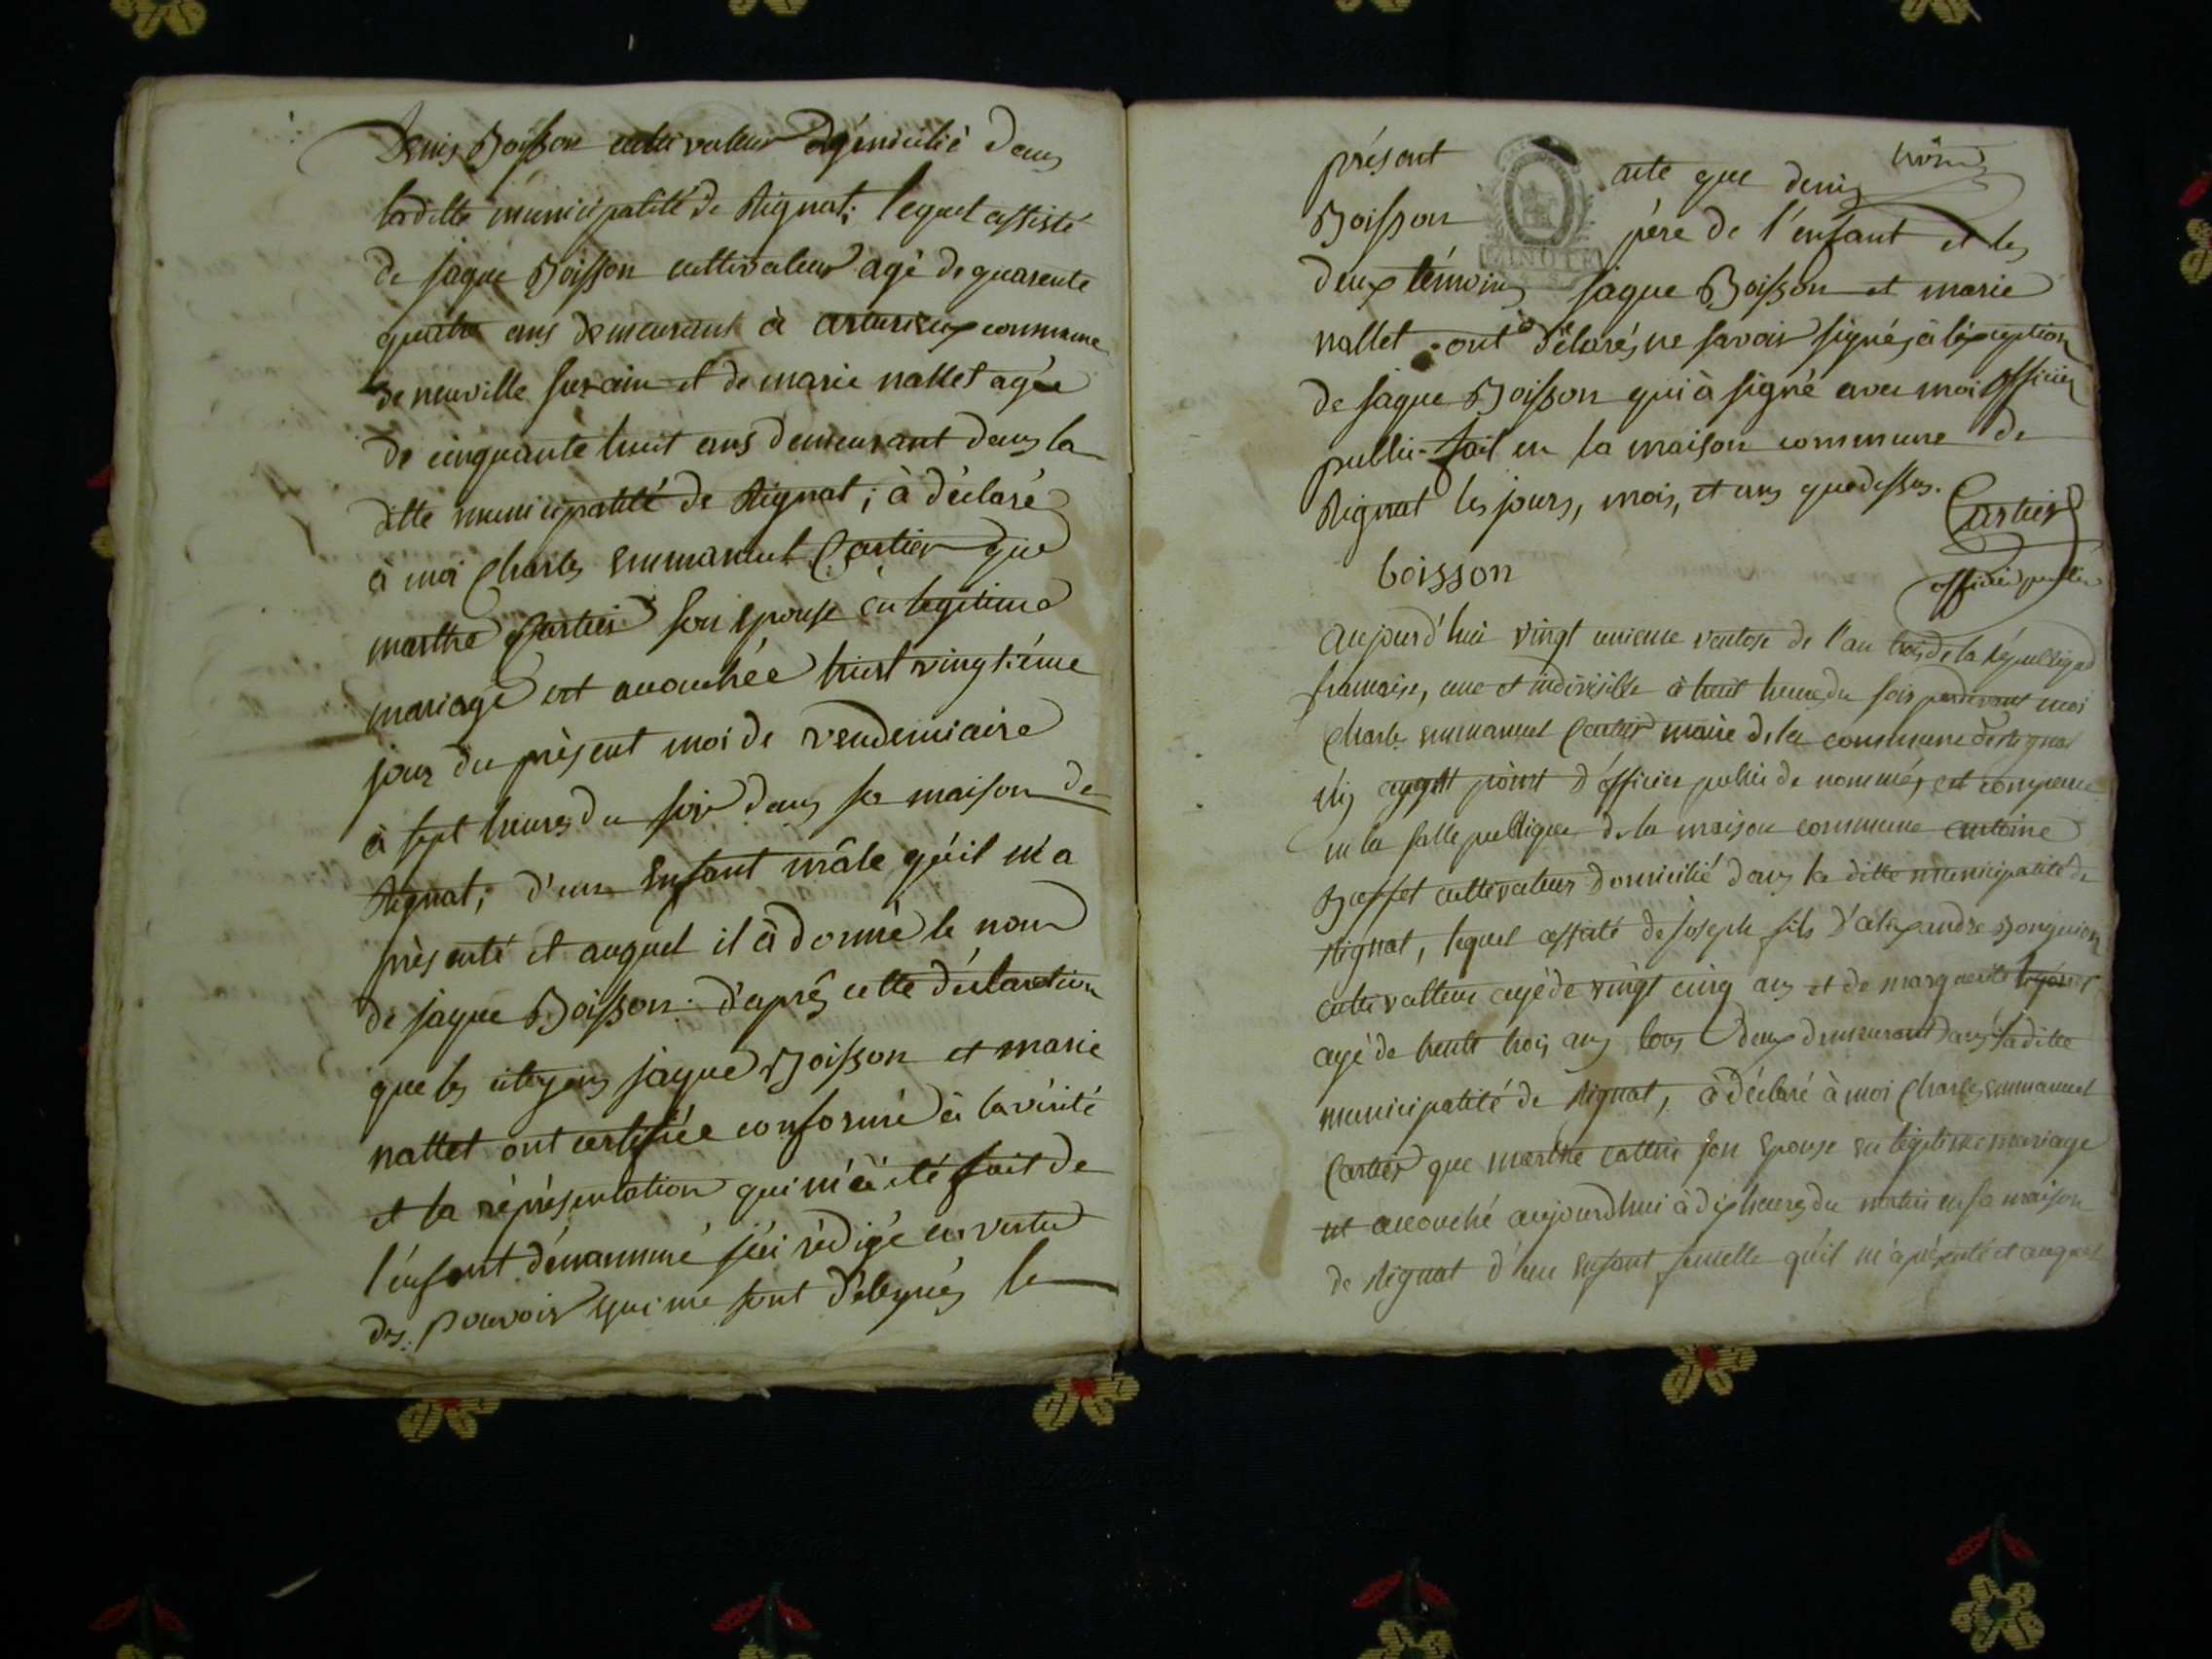 Denis Boisson cultivateur domicilié dans
laditte municipalité de Rignat; lequel assisté
de jaque Boisson cultivateur agé de quarente
quatre ans demeurant à commune
de neuville sur ain et de marie nallet agée
de cinquante huit ans demeurant dans la
ditte municipalité de Rignat; à déclaré
à moi Charles Emmanuel Cartier que
marthe Cartier son Epouse en legitime
mariage est accouchée hier vingtiéme
jour du présent moi de vendemiaire
à sept heures du soir dans sa maison de
Rignat; d'un Enfant mâle qu'il m'a
présenté et auquel il à donné le nom
de jaque Boisson. d'aprés cette déclaration
que les citoyens jaque Boisson et marie
nallet ont certifiée conforme à la vérité
et la réprésentation qui m'a été fait de
l'énfant dénommé j'ai rédigé en vertu
des pouvoir qui me sont délegués le
présent acte que denis
Boisson père de l'énfant et les
deux témoins jaque Boisson et marie
nallet ont déclarés ne savoir signés à l'éxception
de jaque Boisson qui à signé avec moi officier
public fait en la maison commune de
Rignat les jours, mois, et ans que dessus.
Cartier
boisson
officier public
MINUTE
aujourd'hui vingt unieme ventose de l'an trois de la république
francaise, une et indivisible à huit heures du soir pardevant moi
Charle Emmanuel Cartier maire de la commune de Rignat
ayant point d'officier public de nommé, est comparu
en la salle publique de la maison commune antoine
cultivateur domicilié dans la ditte municipalité de
Rignat, lequel assisté de joseph fils d'alexandre
cultivatteur agé de vingt cinq ans et de marguerite
agé de trente trois ans tous deux demeurant dans la ditte
municipalité de Rignat, à déclaré à moi Charles Emmanuel
Cartier que marthe son Epouse en légitime mariage
est accouché aujourdhui à dix heures du matin en sa maison
de Rignat d'un Enfant femelle qu'il m'a présenté et auquel